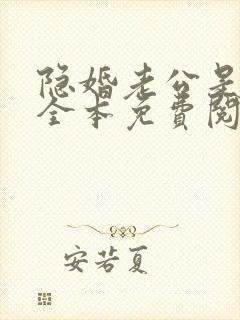 隐婚老公是
全本免费阅
安若夏